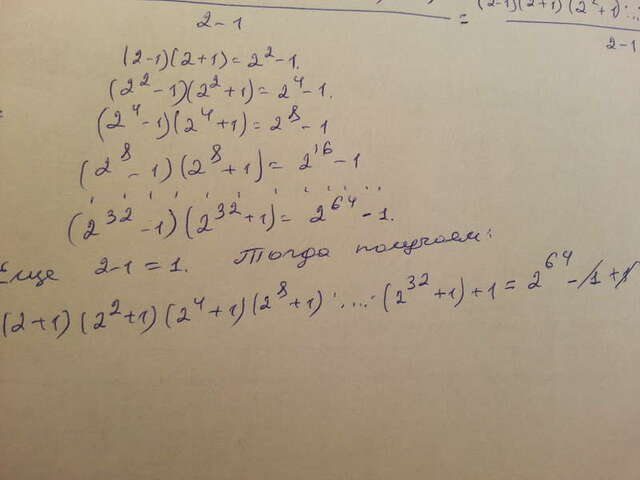 2-1 = (2-1)(2+1)(2²+1)...
2-1
(2-1)(2+1) = 2²-1.
(2²-1)(2²+1) = 2⁴-1.
(2⁴-1)(2⁴+1) = 2⁸-1
(2⁸-1)(2⁸+1) = 2¹⁶-1
(2³²-1)(2³²+1) = 2⁶⁴-1.
Еще 2-1 = 1. Тогда получаем:
(2+1)(2²+1)(2⁴+1)(2⁸+1)·....·(2³²+1)+1 = 2⁶⁴-1+1